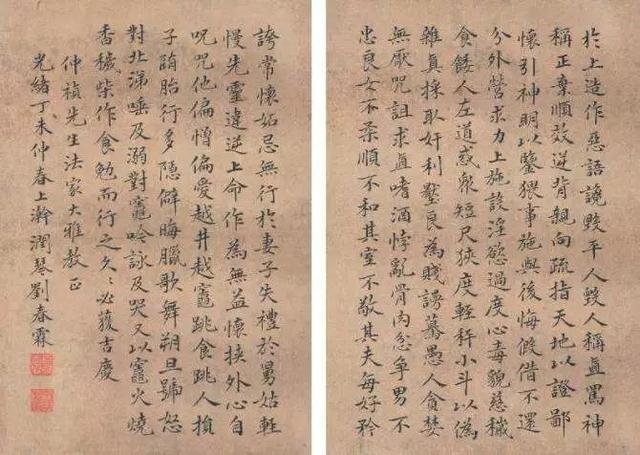 於上造作惡語讒毀平人毀人稱直罵神
稱正棄順效逆背親向疏指天地以證鄙
懷引神明以鑒猥事施與後悔假借不還
分外營求力上施設淫慾過度心毒貌慈穢
食餧人左道惑衆短尺狹度輕秤小斗以偽
雜真採取奸利壓良為賤謾驀愚人貪婪
無厭咒詛求直嗜酒悖亂骨肉忿爭男不
忠良女不柔順不和其室不敬其夫每好矜
誇常懷妬忌無行於妻子失禮於舅姑輕
慢先靈違逆上命作為無益懷挾外心自
咒咒他偏憎偏愛越井越竈跳食跳人損
子墮胎行多隱僻晦臘歌舞朔旦號怒
對北涕唾及溺對竈吟詠及哭又以竈火燒
香穢柴作食勉而行之久〻必獲吉慶
仲禎先生法家大雅教正
光緒丁未仲春上澣潤琴劉春霖